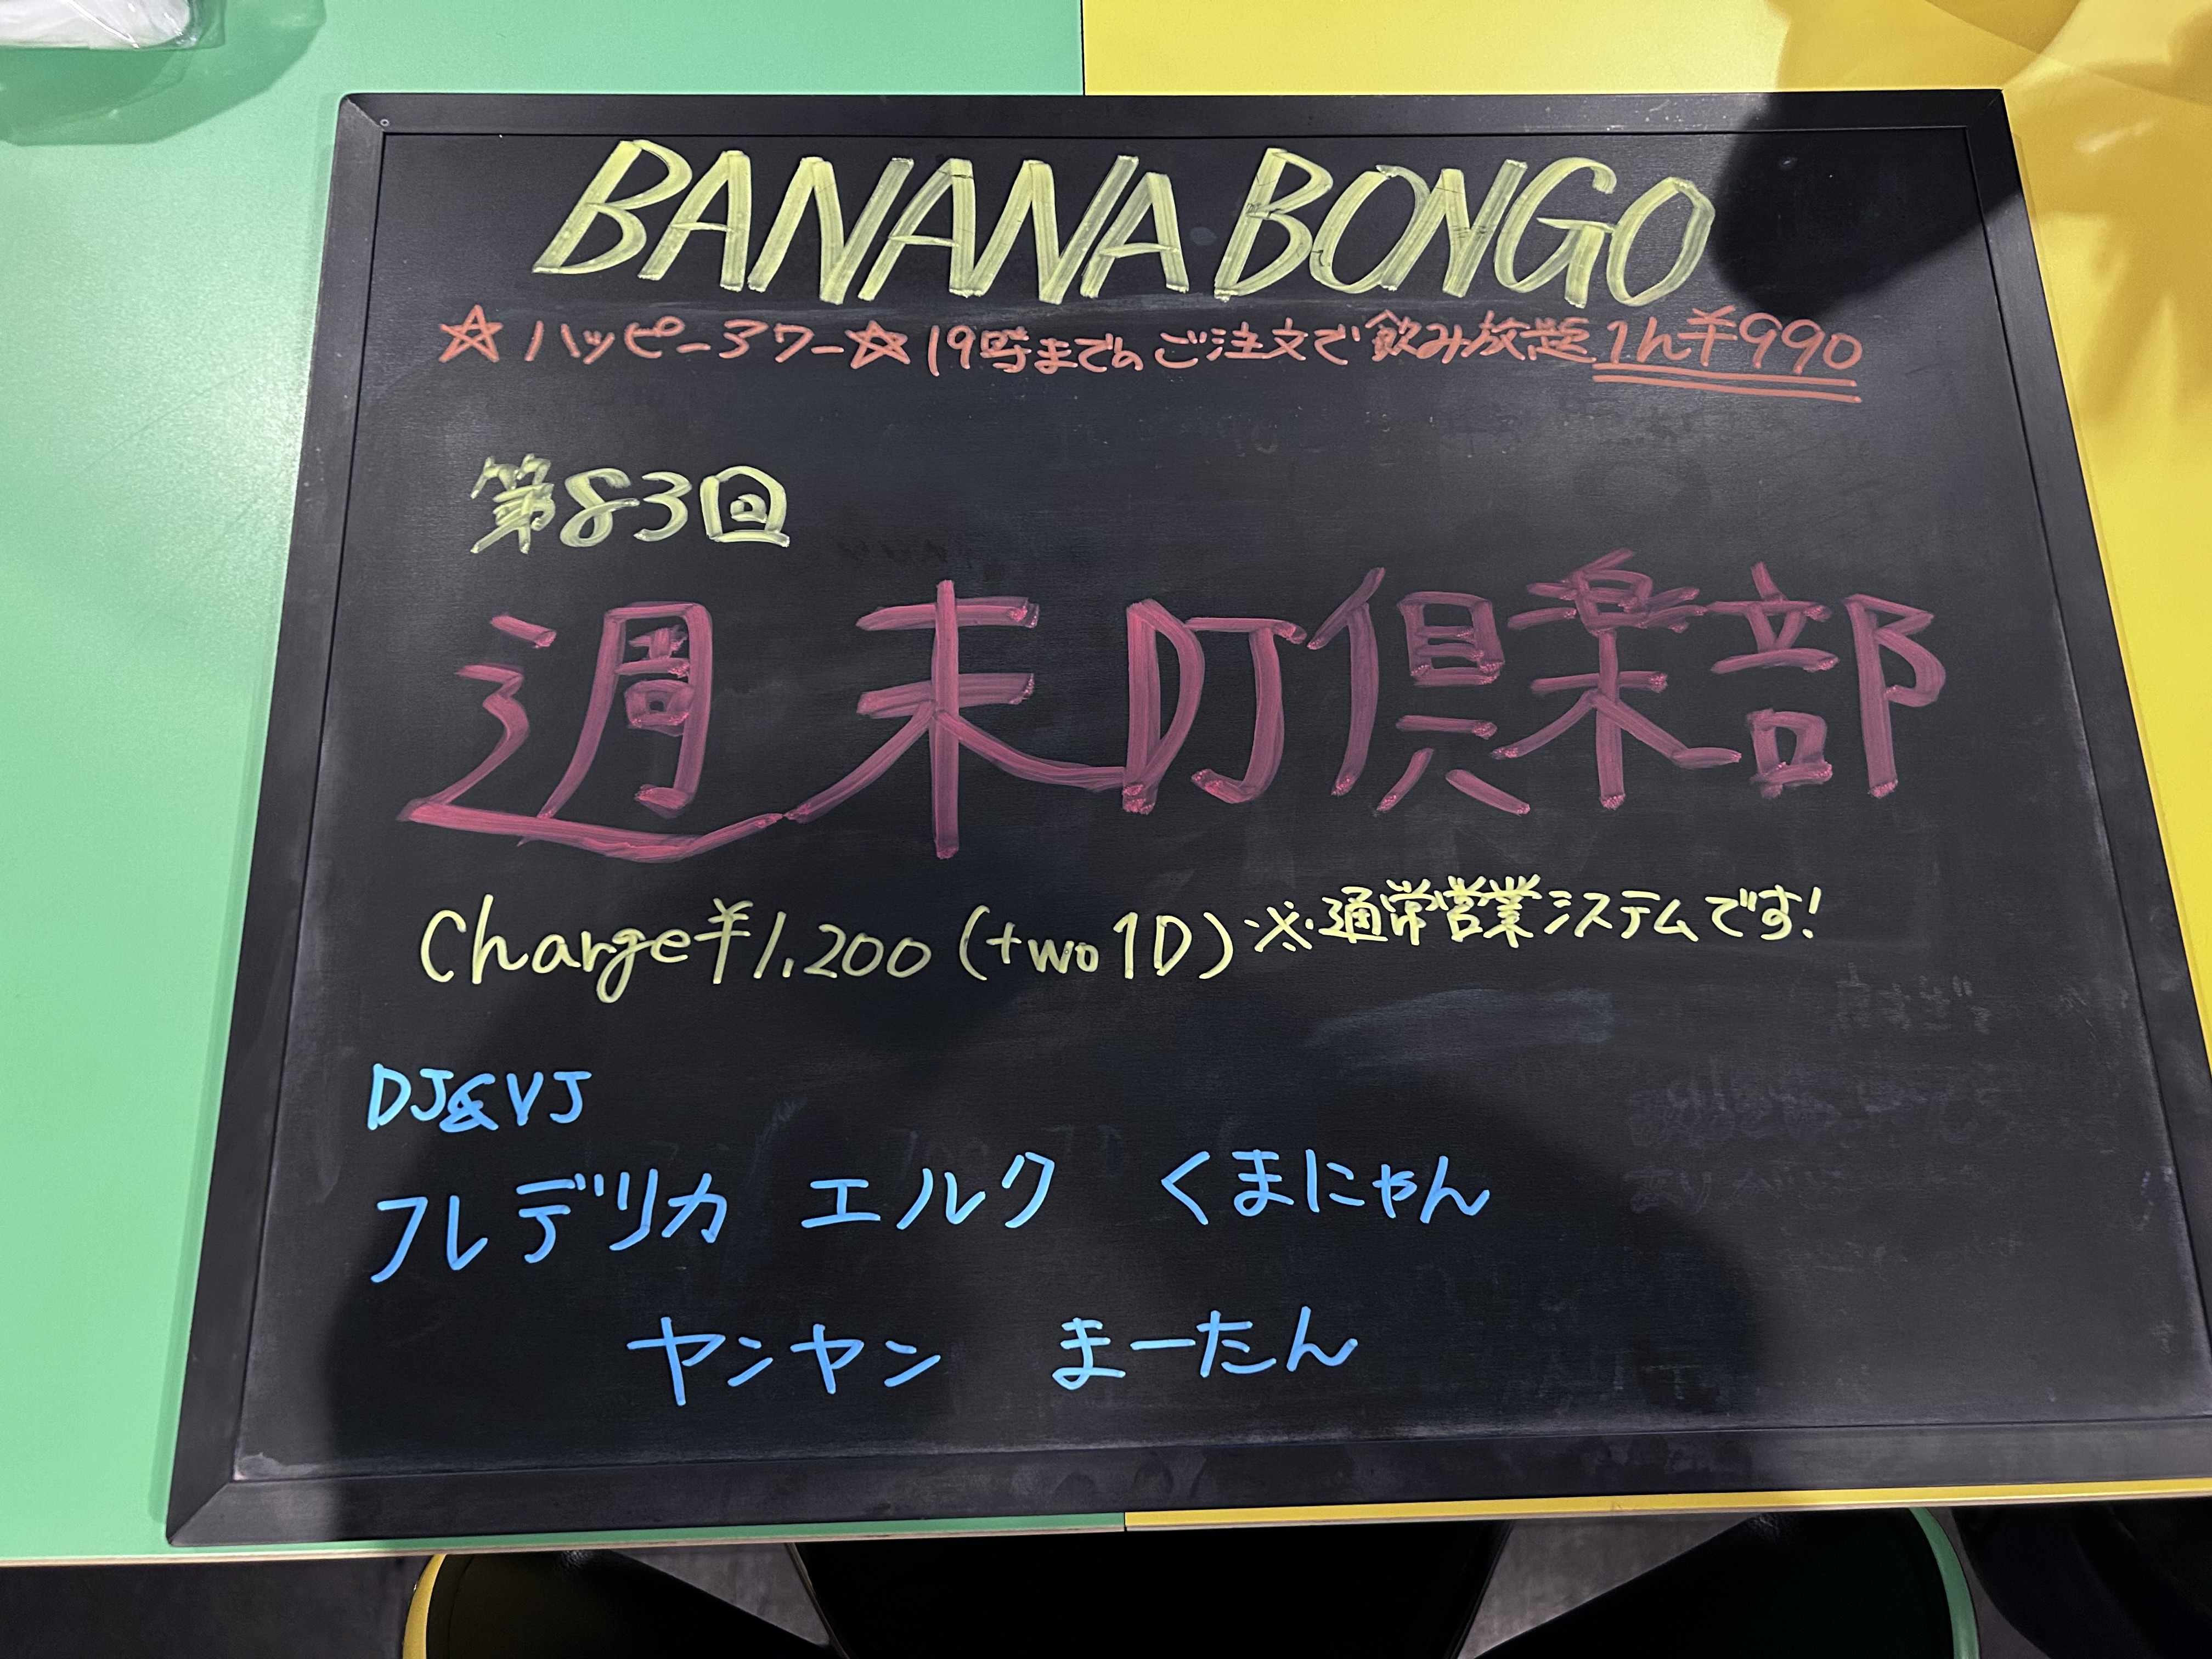 BANANA BONGO
☆ハッピーアワー☆19時までのご注文で飲み放題1h¥990
第83回
週末DJ倶楽部
Charge¥1,200(+wo1D)※通常営業システムです!
DJ&VJ
フレデリカ エルク くまにゃん
ヤンヤン まーたん